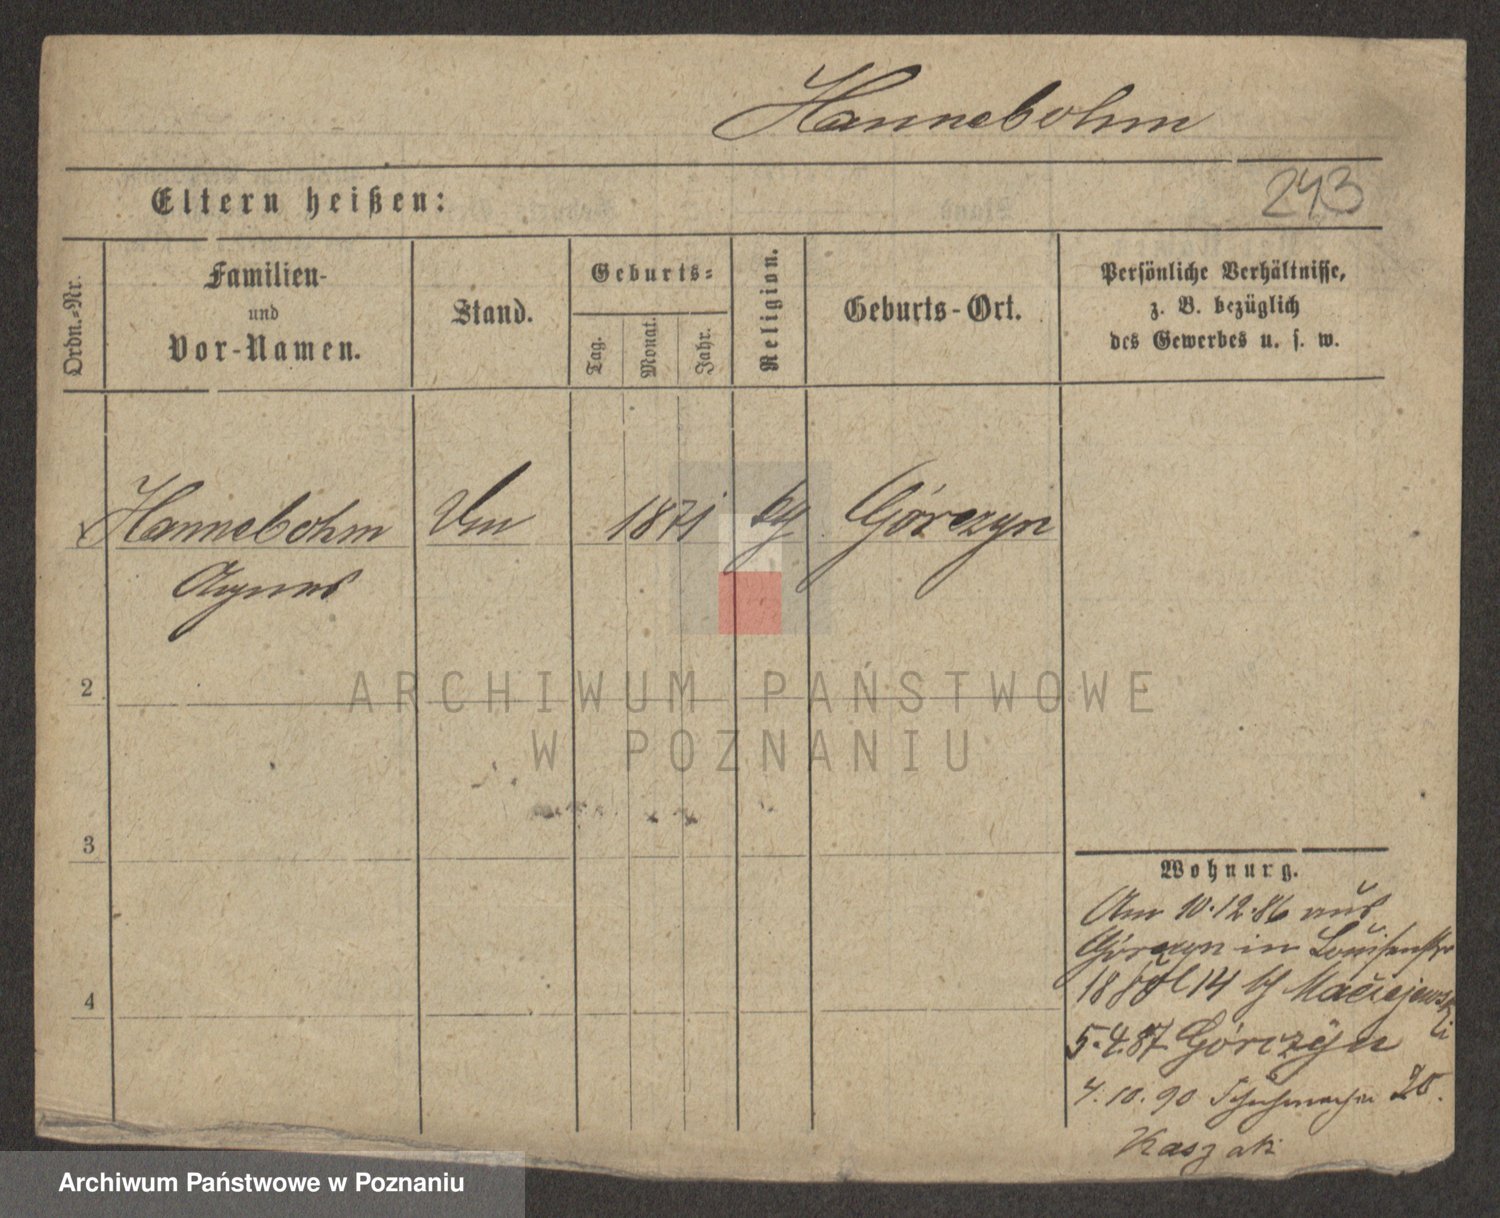 Hannebohm
Eltern heißen:
243
Ordn.-Nr.
Familien-
und
Vor-Namen.
Stand.
Geburts-
Tag.
Monat.
Jahr.
Religion.
Geburts-Ort.
Persönliche Verhältnisse,
z. B. bezüglich
des Gewerbes u. s. w.
Hannebohm
Agnes
1871
Górczyn
2
3
4
ARCHIWUM PAŃSTWOWE
W POZNANIU
Wohnung.
Am 10.12.86 aus
Górczyn in Louisenstr
14 Maciejewski
5.4.87 Górczyn
4.10.90 25.
Kaszak
Archiwum Państwowe w Poznaniu